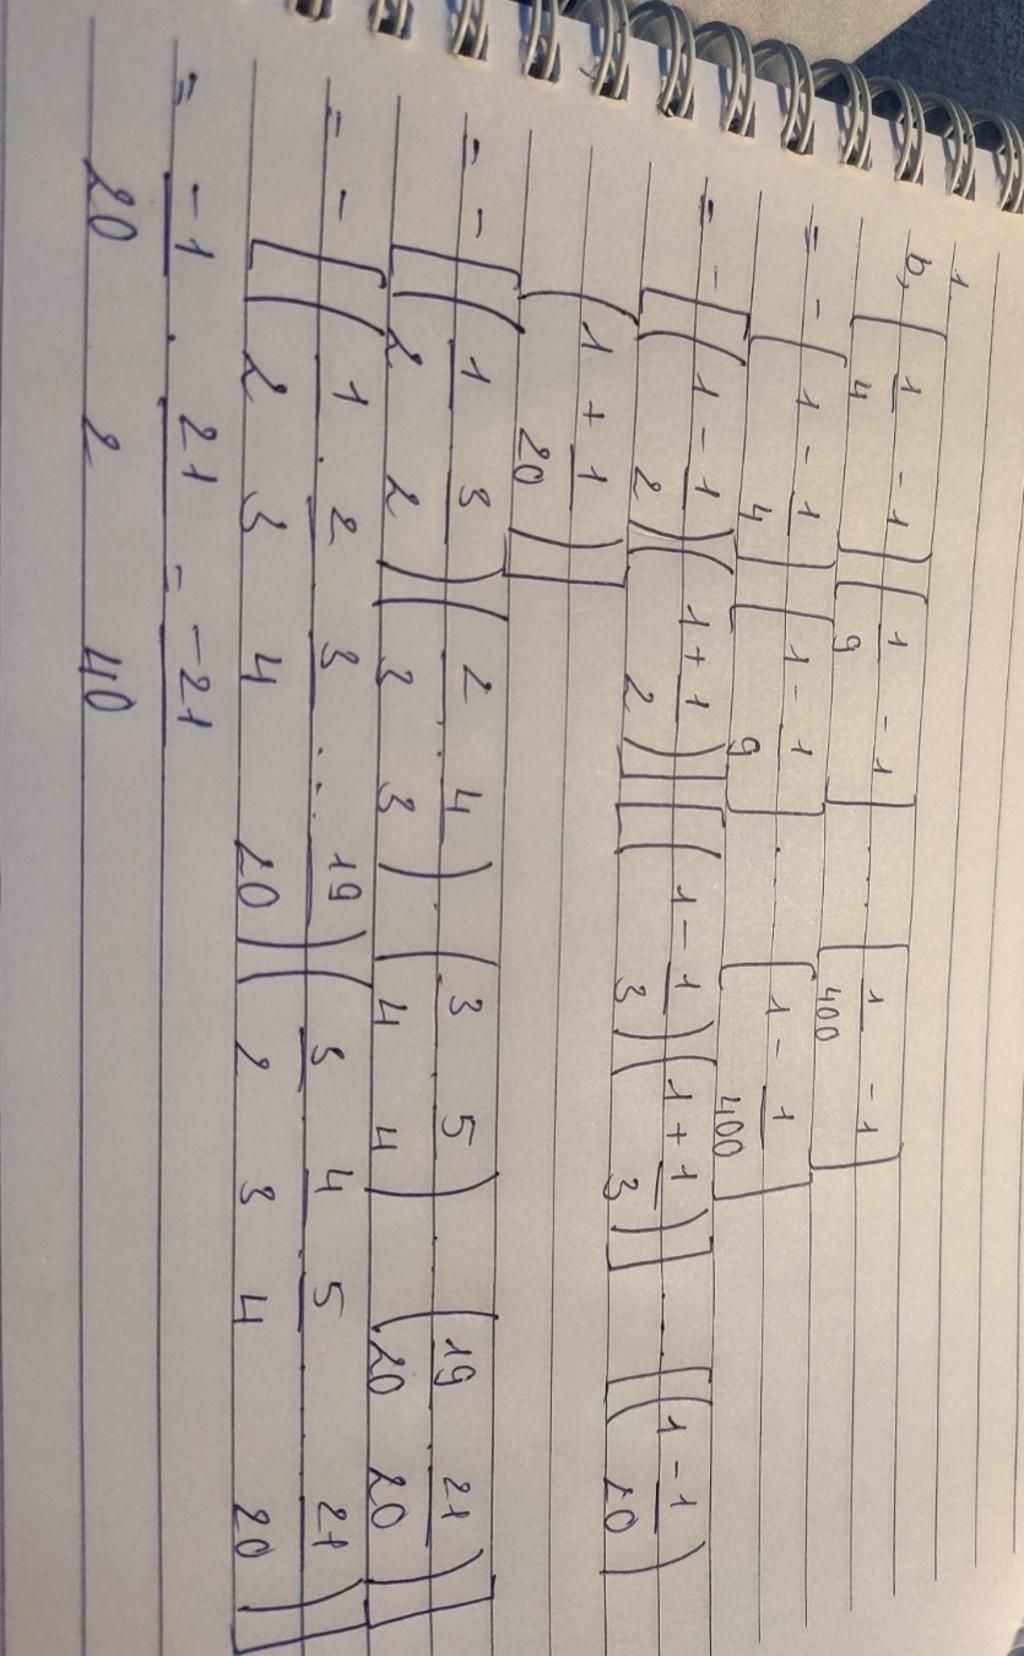 1
b, [1/4 - 1][1/9 - 1] ... [1/400 - 1]
= - [1 - 1/4][1 - 1/9] ... [1 - 1/400]
= - [(1 - 1/2)(1 + 1/2)][(1 - 1/3)(1 + 1/3)] ... [(1 - 1/20)
(1 + 1/20)]
= - [(1/2 . 3/2)(2/3 . 4/3).(3/4 . 5/4) ... (19/20 . 21/20)]
= - [(1/2 . 2/3 . 3/4 ... 19/20)(3/2 . 4/3 . 5/4 ... 21/20)]
= -1/20 . 21/2 = -21/40